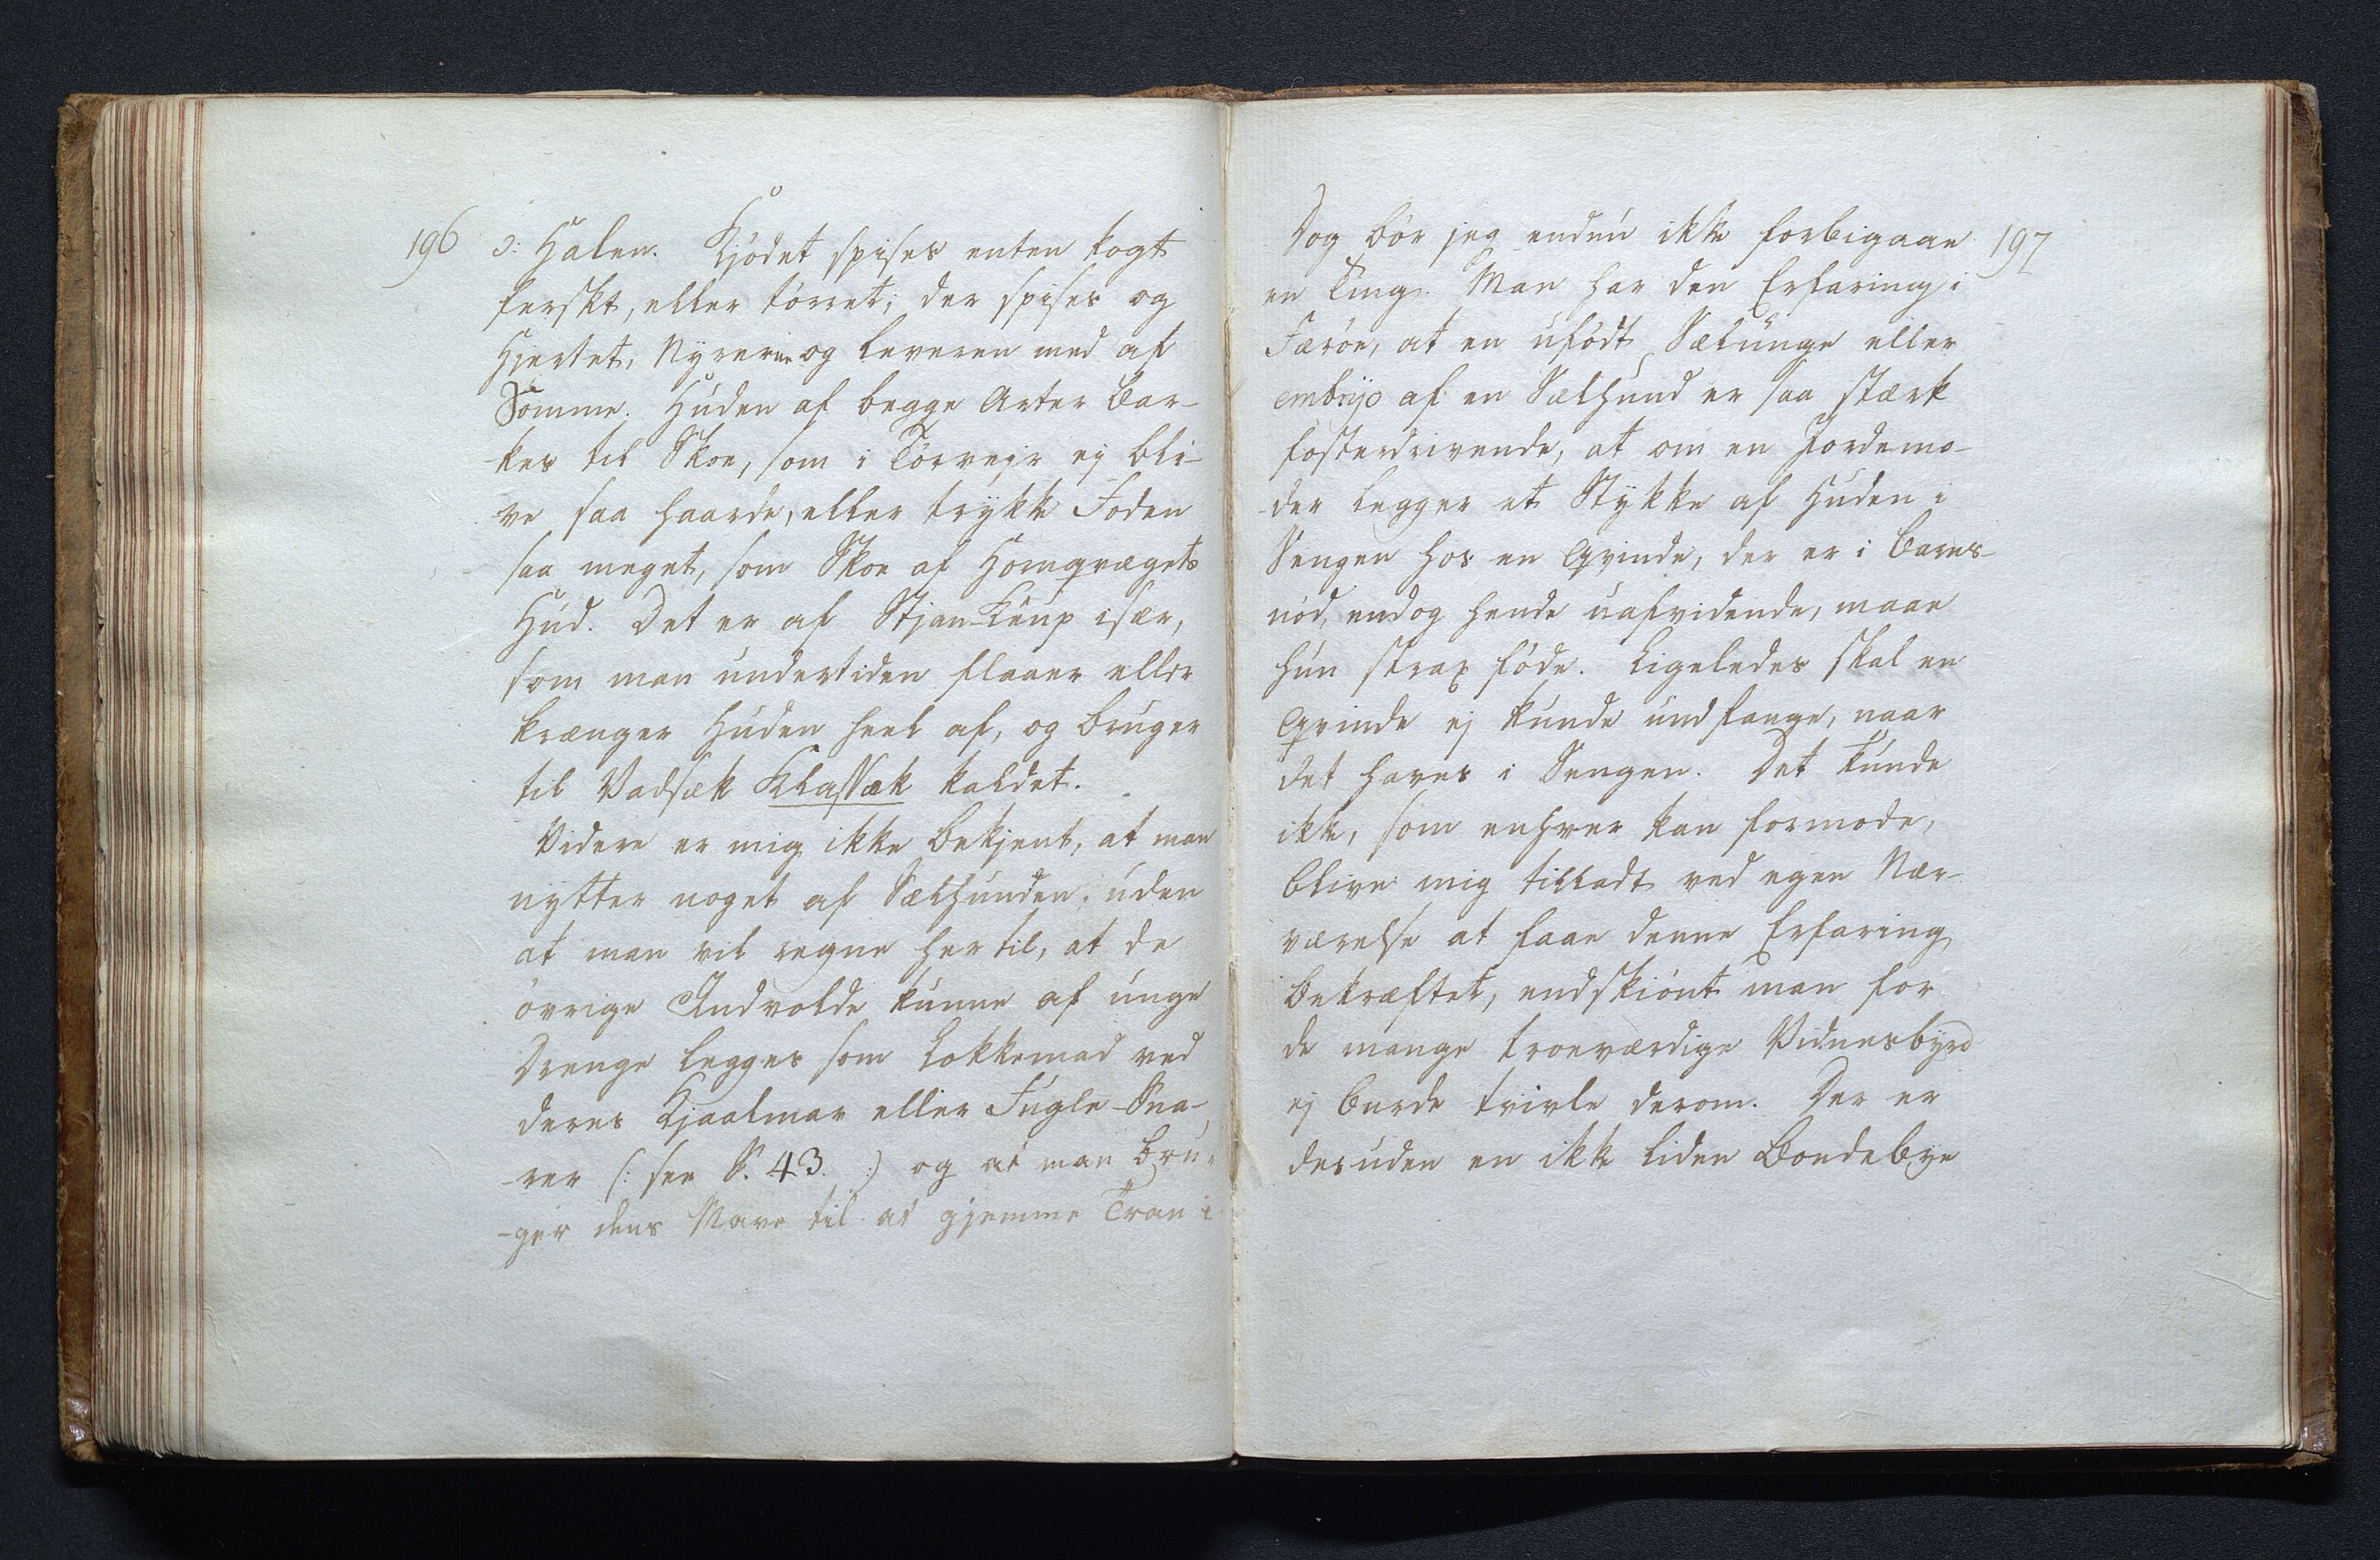 196
ɔ: Halen. Kjödet spises enten kogt
ferskt, eller törret; der spises og
Hjertet, Nyrerne og Leveren med af
Somme. Huden af begge Arter bar-
-kes til Skoe, som i Törvejr ej bli-
ve saa haarde, eller trykke Foden
saa meget, som Skoe af Hornqvægets
Hud. Det er af Stjan-Kuup især,
som man undertiden flaaer eller
krænger Huden heel af, og bruger
til Vadsæk Klassæk kaldet.
Videre er mig ikke bekjent, at man
nytter noget af Sælhunden, uden
at man vil regne hertil, at de
övrige Indvolde kunne af unge
Drenge legges som Lokkemad ved
deres Kjaalmar eller Fugle-Sna-
-rer (: see S. 43. :) og at man bru-
-ger dens Mave til at gjemme Tran i
197
Dog bör jeg endnu ikke forbigaae
en Ting. Man har den Erfaring i
Færöe, at en ufödt Sælunge eller
embryo af en Sælhund er saa stærk
fosterdrivende, at om en Jordemo-
-der legger et Stykke af Huden i
Sengen hos en Qvinde, der er i Barns-
nöd, endog hende uafvidende, maae
hun strax föde. Ligeledes skal en
Qvinde ej kunde undfange, naar
det haves i Sengen. Det kunde
ikke, som enhver kan formode,
blive mig tilladt ved egen Nær-
værelse at faae denne Erfaring
bekræftet, endskiönt man for
de mange troeværdige Vidnesbyrd
ej burde tvivle derom. Der er
desuden en ikke liden Bondebye